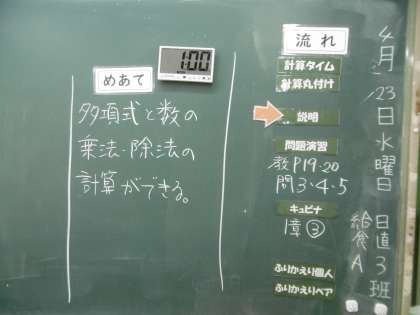 4月23日水曜日
日直3班
給食A
流れ
計算タイム
計算丸付け
説明
問題演習
教P19-20
問3・4・5
キュビナ
1章③
ふりかえり個人
ふりかえりペア
1:00
めあて
多項式と数の
乗法・除法の
計算ができる。